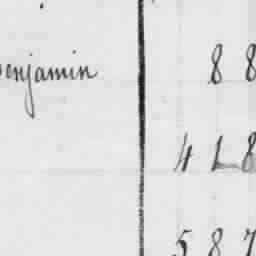 enjamin 8 8
4 L 8
5 8 7